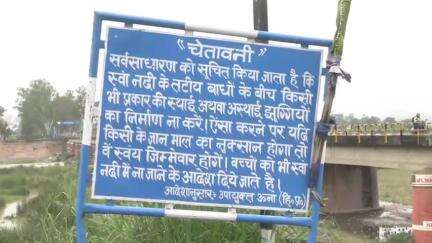 “चेतावनी”
सर्वसाधारण को सूचित किया जाता है कि
स्वां नदी के तटीय बाधों के बीच किसी
भी प्रकार की स्थाई अथवा अस्थाई झुग्गियों
का निर्माण ना करें। ऐसा करने पर यदि
किसी के जान माल का नुक्सान होगा तो
वें स्वयं जिम्मेवार होगें। बच्चों को भी स्वां
नदी में ना जाने के आदेश दिये जाते है।
आदेशानुसार:- उपायुक्त ऊना (हि.प्र.)